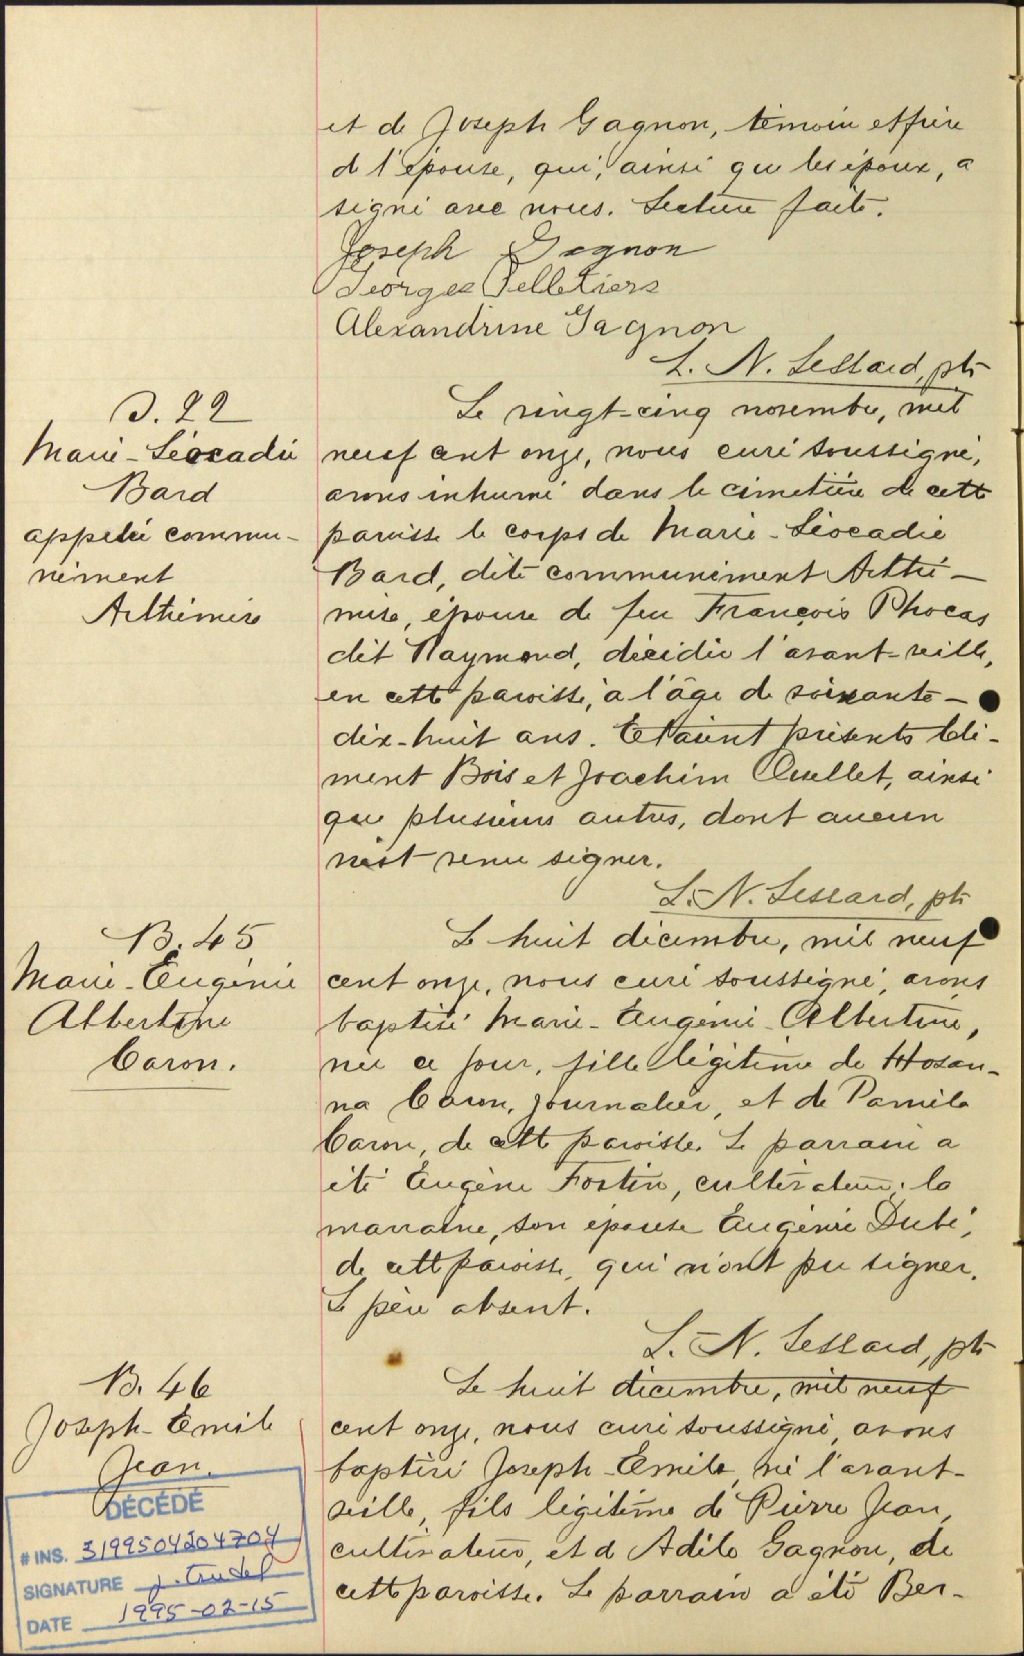 et de Joseph Gagnon, témoin et frère
de l'épouse, qui, ainsi que les époux, a
signé avec nous. Lecture faite.
Joseph Gagnon
Georges Pelletiers
Alexandrine Gagnon
L. N. Lessard, ptr
S. 22
Marie-Léocadie
Bard
appelée commu-
nément
Arthémise
Le vingt-cinq novembre, mil
neuf cent onze, nous curé soussigné,
avons inhumé dans le cimetière de cette
paroisse le corps de Marie-Léocadie
Bard, dite communément Arthé-
mise, épouse de feu François Phocas
dit Raymond, décédée l'avant-veille,
en cette paroisse, à l'âge de soixante-
dix-huit ans. Etaient présents Clé-
ment Bois et Joachim Ouellet, ainsi
que plusieurs autres, dont aucun
n'est venu signer.
L. N. Lessard, ptr
B. 45
Marie-Eugénie
Albertine
Caron.
Le huit décembre, mil neuf
cent onze, nous curé soussigné, avons
baptisé Marie-Eugénie-Albertine,
née ce jour, fille légitime de Hosan-
na Caron, journalier, et de Pamila
Caron, de cette paroisse. Le parrain a
été Eugène Fortin, cultivateur; la
marraine, son épouse Eugénie Dubé,
de cette paroisse, qui n'ont pu signer.
Le père absent.
L. N. Lessard, ptr
B. 46
Joseph-Emile
Jean.
Le huit décembre, mil neuf
cent onze, nous curé soussigné, avons
baptisé Joseph-Emile, né l'avant-
veille, fils légitime de Pierre Jean,
cultivateur, et d'Adèle Gagnon, de
cette paroisse. Le parrain a été Ber-
DÉCÉDÉ
# INS. 3199504204704
SIGNATURE J. Trudel
DATE 1995-02-15